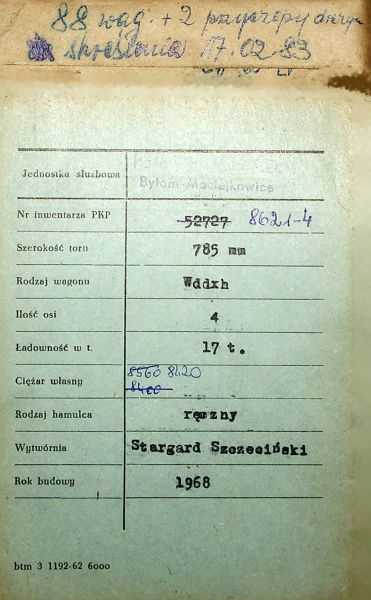 88 wag. + 2 przyczepy
skreślenia 17.02.83
Jednostka służbowa
Bytom-Maciejkowice
Nr inwentarza PKP 52727 8621-4
Szerokość toru 785 mm
Rodzaj wagonu Wddxh
Ilość osi 4
Ładowność w t. 17 t.
8560 8420
Ciężar własny 8400
Rodzaj hamulca ręczny
Wytwórnia Stargard Szczeciński
Rok budowy 1968
btm 3 1192-62 6000